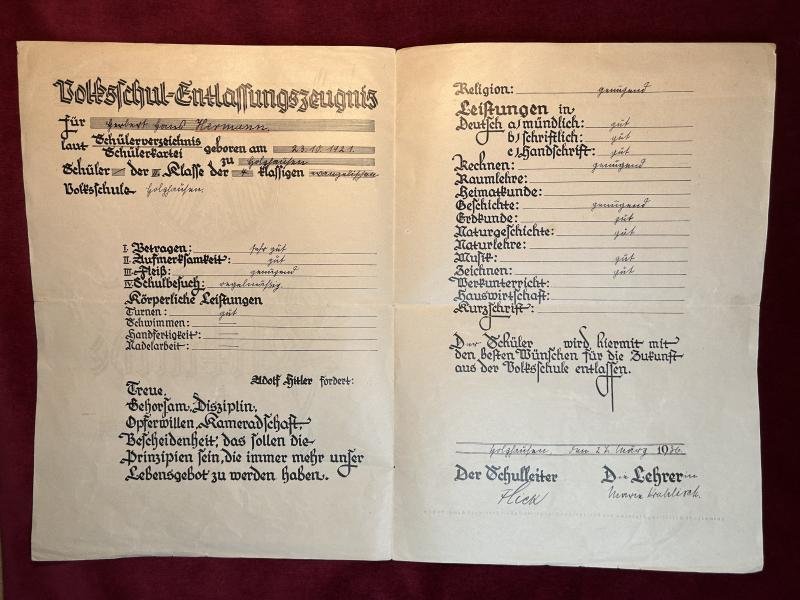 Volksschul-Entlassungszeugnis
für Herbert Hans Hermann.
laut Schülerverzeichnis
Schülerkartei geboren am 23.10.1921.
zu Holzhausen
Schüler der II. Klasse der 4 klassigen evangelischen
Volksschule Holzhausen.
I. Betragen: sehr gut
II. Aufmerksamkeit: gut
III. Fleiß: genügend
IV. Schulbesuch: regelmäßig.
Körperliche Leistungen
Turnen: gut
Schwimmen: —
Handfertigkeit: —
Nadelarbeit: —
Adolf Hitler fordert:
Treue,
Gehorsam, Disziplin,
Opferwillen, Kameradschaft,
Bescheidenheit, das sollen die
Prinzipien sein, die immer mehr unser
Lebensgebot zu werden haben.
Religion: genügend
Leistungen in
Deutsch a) mündlich: gut
b) schriftlich: gut
c) Handschrift: gut
Rechnen: genügend
Raumlehre:
Heimatkunde:
Geschichte: genügend
Erdkunde: gut
Naturgeschichte: gut
Naturlehre:
Musik: gut
Zeichnen: gut
Werkunterricht:
Hauswirtschaft:
Kurzschrift:
Der Schüler wird hiermit mit
den besten Wünschen für die Zukunft
aus der Volksschule entlassen.
Holzhausen, den 27. März 1936.
Der Schulleiter Die Lehrerin
Flick Marie